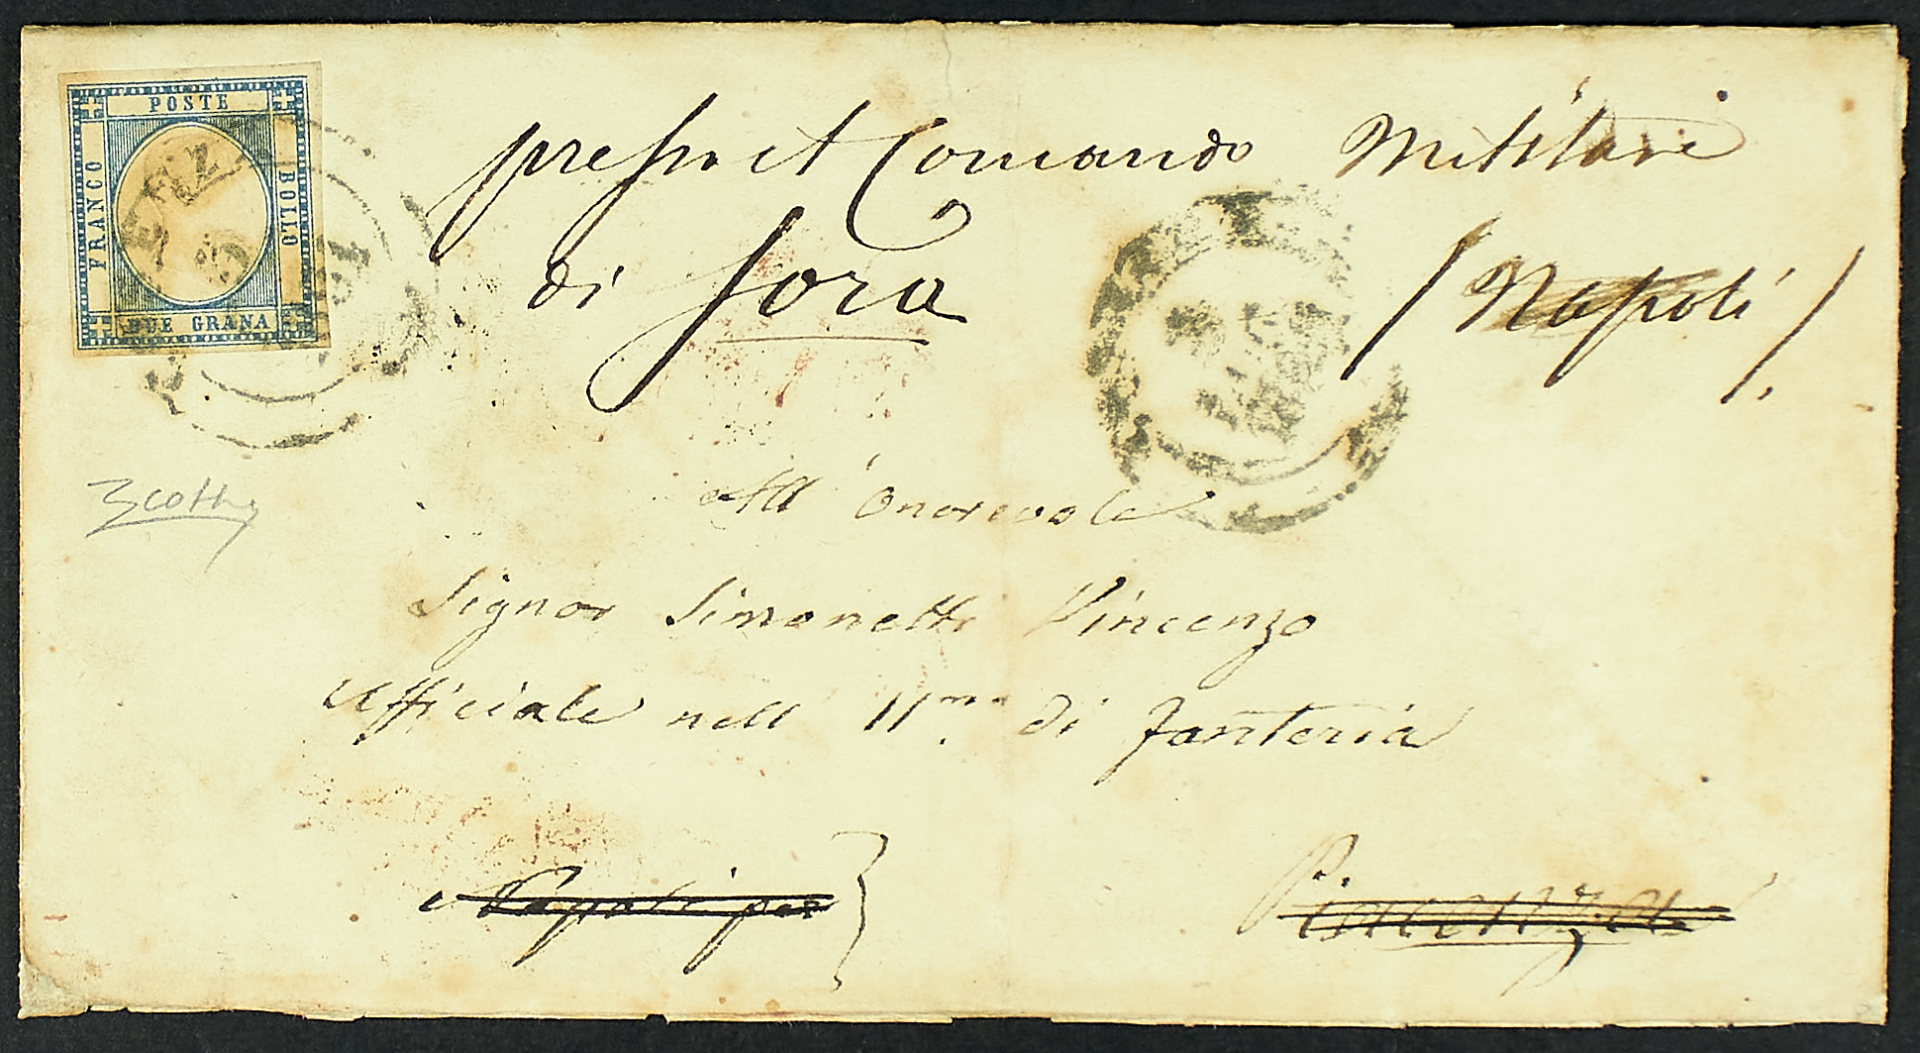 POSTE
FRANCO
BOLLO
DUE GRANA
presso il Comando Militare
di Sora
/ Napoli /.
All' Onorevole
Signor Simonetti Vincenzo
Ufficiale nell 11mo di Fanteria
Napoli per
Piacenza
61